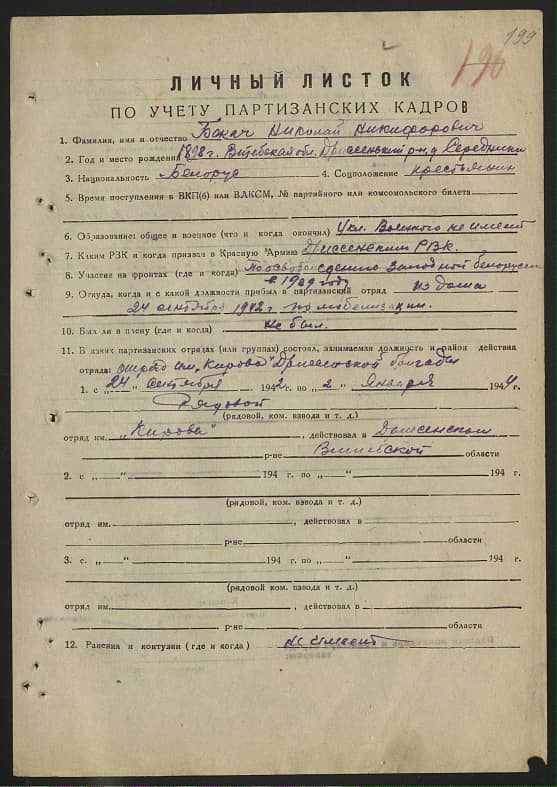 199
196
ЛИЧНЫЙ ЛИСТОК
ПО УЧЕТУ ПАРТИЗАНСКИХ КАДРОВ
1. Фамилия, имя и отчество Бокач Николай Никифорович
2. Год и место рождения Витебская обл. Дриссенский р-н, д Середники
3. Национальность Белорус 4. Соцположение крестьянин
5. Время поступления в ВКП(б) или ВЛКСМ, № партийного или комсомольского билета
6. Образование: общее и военное (что и когда окончил) 4 кл. Военного не имеет
7. Каким РЗК и когда призван в Красную Армию Дриссенским РВК.
8. Участие на фронтах (где и когда) По освобождению Западной Белоруссии
в 1939 году
9. Откуда, когда и с какой должности прибыл в партизанский отряд из дома
24 сентября 1942 г по мобилизации.
10. Был ли в плену (где и когда) не был.
11. В каких партизанских отрядах (или группах) состоял, занимаемая должность и район действия
отряда: отряд им. „Кирова" Дриссенской бригады
1. с „24" сентября 1942 г. по „2" Января 1944 г.
Рядовой
(рядовой, ком. взвода и т. д.)
отряд им. „Кирова", действовал в Дриссенском
р-не Витебской области
2. с „ " 194 г. по „ " 194 г.
(рядовой, ком. взвода и т. д.)
отряд им. , действовал в
р-не области
3. с. „ " 194 г. по „ " 194 г.
(рядовой, ком. взвода и т. д.)
отряд им. , действовал в
р-не области
12. Ранения и контузии (где и когда) не имеет